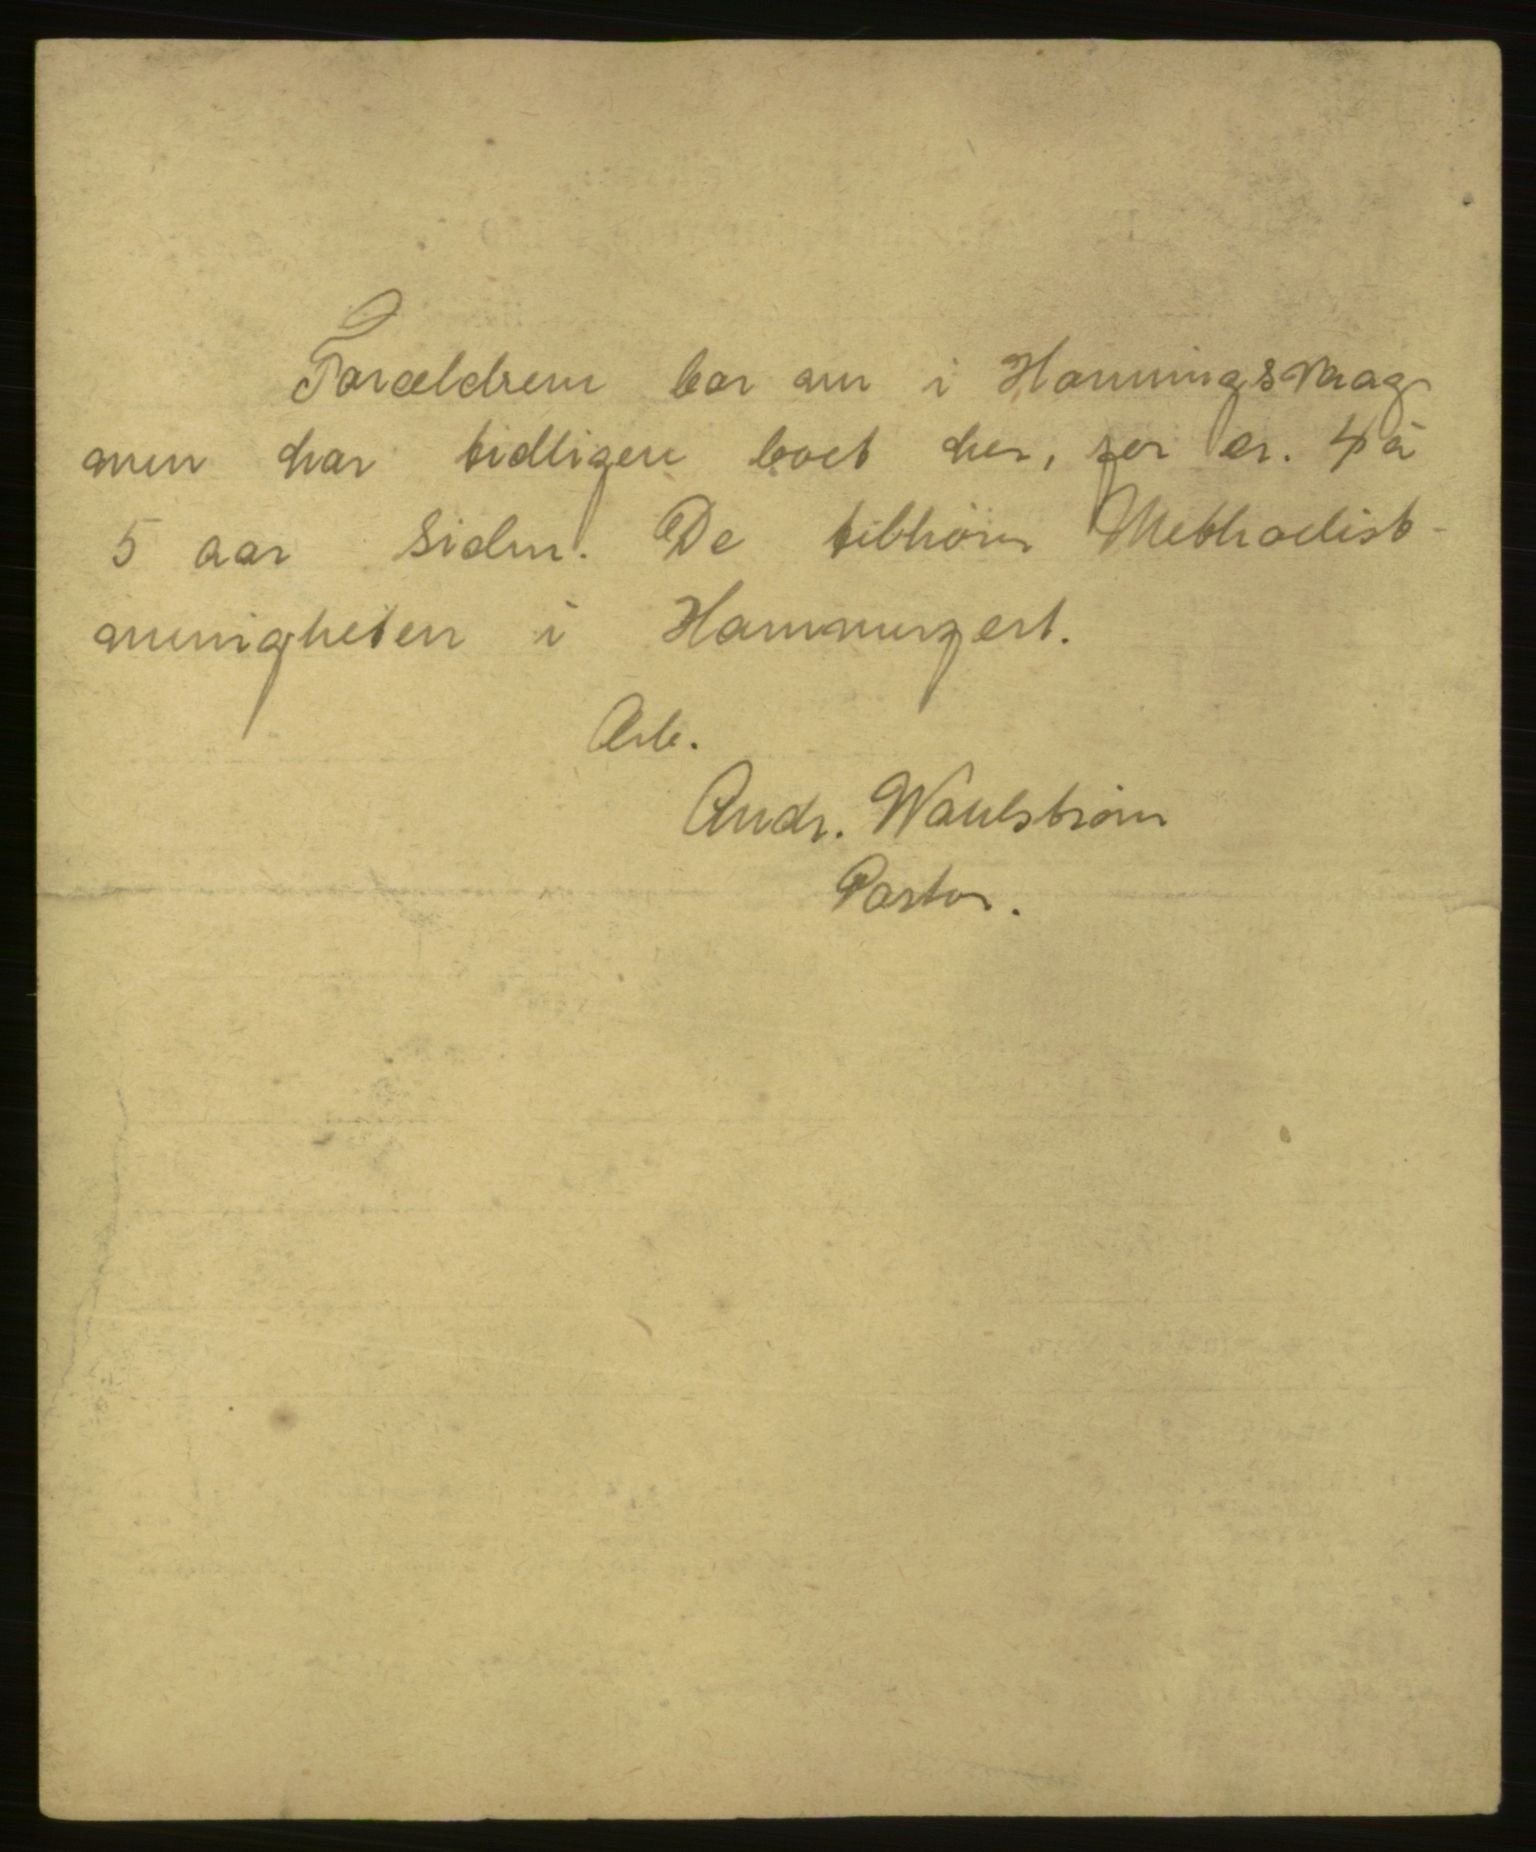 Forældrene bor nu i Honningsvaag
men har tidligere boet her, for er. 4 à
5 aar siden. De tilhører Methodist-
menigheten i Hammerfest.
Ærb.
Andr. Wahlstrøm
Pastor.